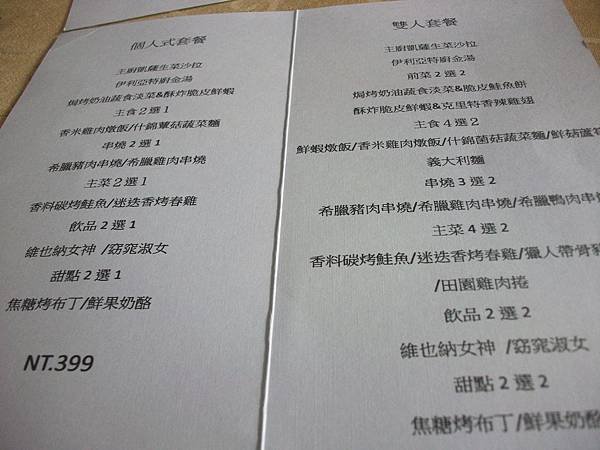 個人式套餐
主廚凱薩生菜沙拉
伊利亞特廚金湯
焗烤奶油蔬食淡菜&酥炸脆皮鮮蝦
主食2選1
香米雞肉燉飯/什錦蕈菇蔬菜麵
串燒2選1
希臘豬肉串燒/希臘雞肉串燒
主菜2選1
香料碳烤鮭魚/迷迭香烤春雞
飲品2選1
維也納女神 /窈窕淑女
甜點2選1
焦糖烤布丁/鮮果奶酪
NT.399
雙人套餐
主廚凱薩生菜沙拉
伊利亞特廚金湯
前菜2選2
焗烤奶油蔬食淡菜&脆皮鮭魚餅
酥炸脆皮鮮蝦&克里特香辣雞翅
主食4選2
鮮蝦燉飯/香米雞肉燉飯/什錦菌菇蔬菜麵/鮮菇蘆筍
義大利麵
串燒3選2
希臘豬肉串燒/希臘雞肉串燒/希臘鴨肉串燒
主菜4選2
香料碳烤鮭魚/迷迭香烤春雞/獵人帶骨豬
/田園雞肉捲
飲品2選2
維也納女神 /窈窕淑女
甜點2選2
焦糖烤布丁/鮮果奶酪